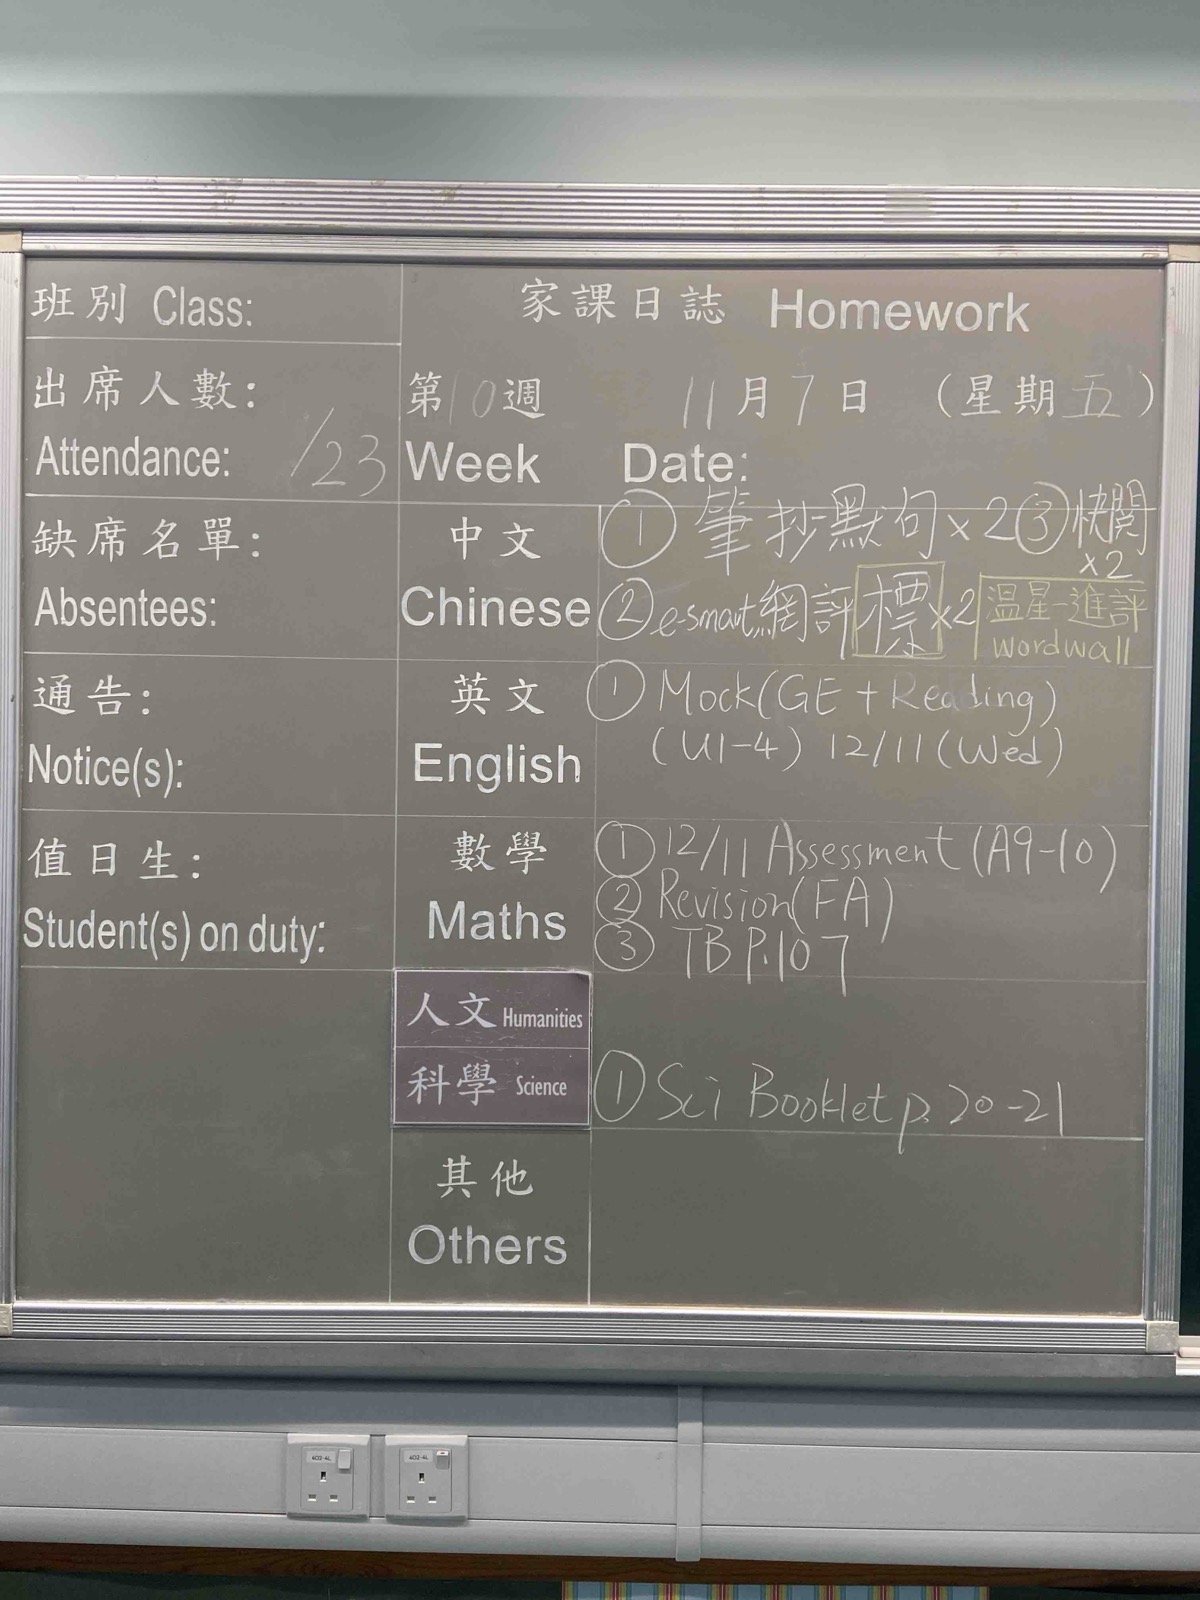 班別 Class:
家課日誌 Homework
出席人數:
Attendance: /23
第10週 11月7日 (星期五)
Week Date:
缺席名單:
Absentees:
中文
Chinese
① 筆抄默句×2 ③快閱
×2
② e-smart網評標×2 溫星-進評
wordwall
通告:
Notice(s):
英文
English
① Mock(GE + Reading)
(U1-4) 12/11(Wed)
值日生:
Student(s) on duty:
數學
Maths
① 12/11 Assessment(A9-10)
② Revision(FA)
③ TB P.107
人文 Humanities
科學 Science
① Sci Booklet p.20-21
其他
Others